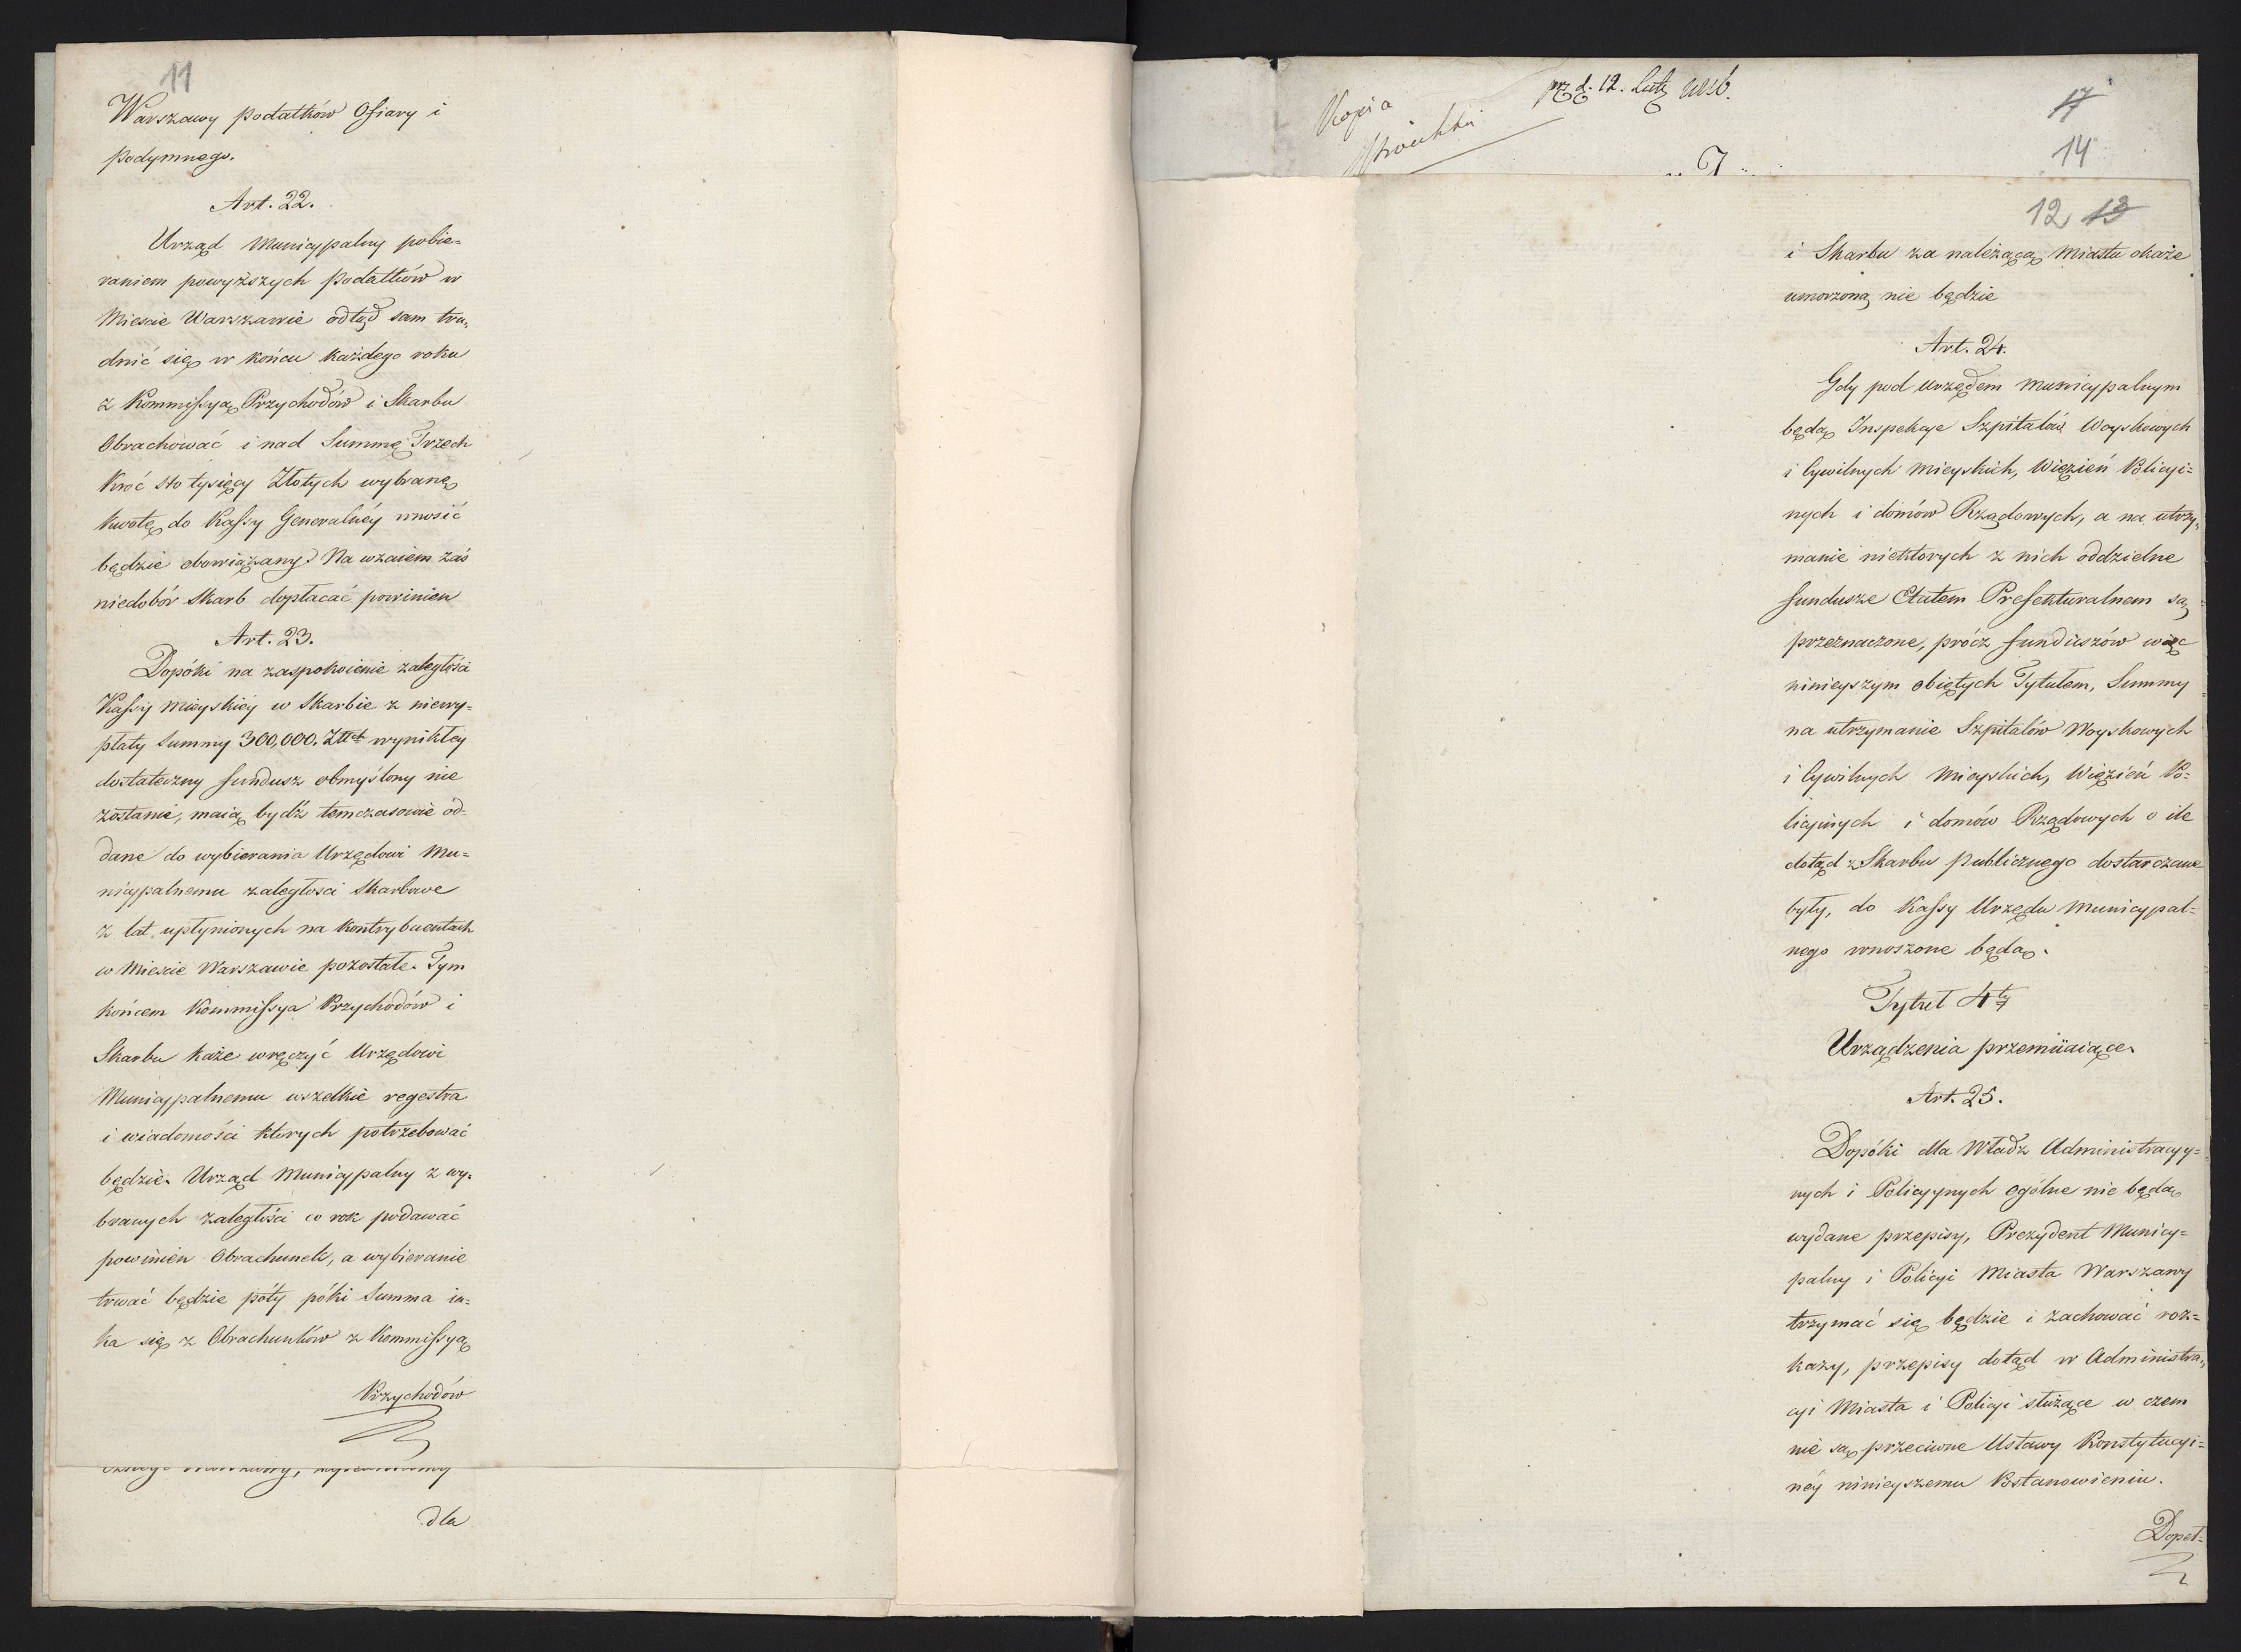 11
Warszawy podatków Ofiary i
podymnego.
Art. 22.
Urząd Municypalny pobie=
raniem powyższych podatków w
Mieście Warszawie odtąd sam tru=
dnić się w końcu każdego roku
z Kommissyą Przychodów i Skarbu
Obrachować i nad Summę Trzech
kroć sto tysięcy Złotych wybraną
kwotę do Kassy Generalnéy wnosić
będzie obowiązany. Na wzaiem zaś
niedobór Skarb dopłacać powinien
Art. 23.
Dopóki na zaspokoienie zaległości
Kassy Mieyskiéy w Skarbie z niewy=
płaty Summy 300,000. Złtch wynikłey
dostateczny fundusz obmyślony nie
zostanie, maią bydź temczasowie od=
dane do wybierania Urzędowi Mu=
nicypalnemu zaległości Skarbowe
z lat upłynionych na kontrybuentach
w Mieście Warszawie pozostałe. Tym
końcem Kommissya Przychodów i
Skarbu każe wręczyć Urzędowi
Municypalnemu wszelkie regestra
i wiadomości których potrzebować
będzie. Urząd Municypalny z wy=
branych zaległości co rok podawać
powinien Obrachunek, a wybieranie
trwać będzie póty póki Summa ia=
ka się z Obrachunków z Kommissyą
Przychodów
dla
Kopia
prz d. 12. Lut
17
14
12 13
i Skarbu za należącą Miastu okaże
umorzoną nie będzie
Art. 24.
Gdy pod urzędem municypalnym
będą Inspekcye Szpitalów Woyskowych
i Cywilnych mieyskich, Więzień Policyi=
nych i domów Rządowych, a na utrzy=
manie niektorych z nich oddzielne
fundusze Etatem Prefekturalnem są
przeznaczone, prócz funduszów więc
ninieyszym obiętych Tytułem, Summy
na utrzymanie Szpitalów Woyskowych
i Cywilnych Mieyskich, Więzień Po=
licyinych i domów Rządowych o ile
dotąd z Skarbu publicznego dostarczane
były, do Kassy Urzędu Municypal=
nego wnoszone będą.
Tytuł 4ty
Urządzenia przemiiaiące.
Art. 25.
Dopóki dla Władz Administracyy=
nych i Policyynych ogólne nie będą
wydane przepisy, Prezydent Municy=
palny i Policyi Miasta Warszawy
trzymać się będzie i zachować roz=
kazy, przepisy dotąd w Administra=
cyi Miasta i Policyi służące w czem
nie są przeciwne Ustawy Konstytucyi=
néy ninieyszemu Postanowieniu.
Dopeł=